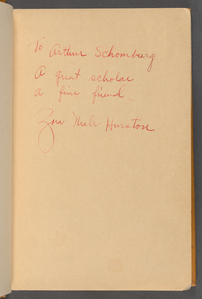 To Arthur Schomburg
A great scholar
a fine friend
Zora Neale Hurston